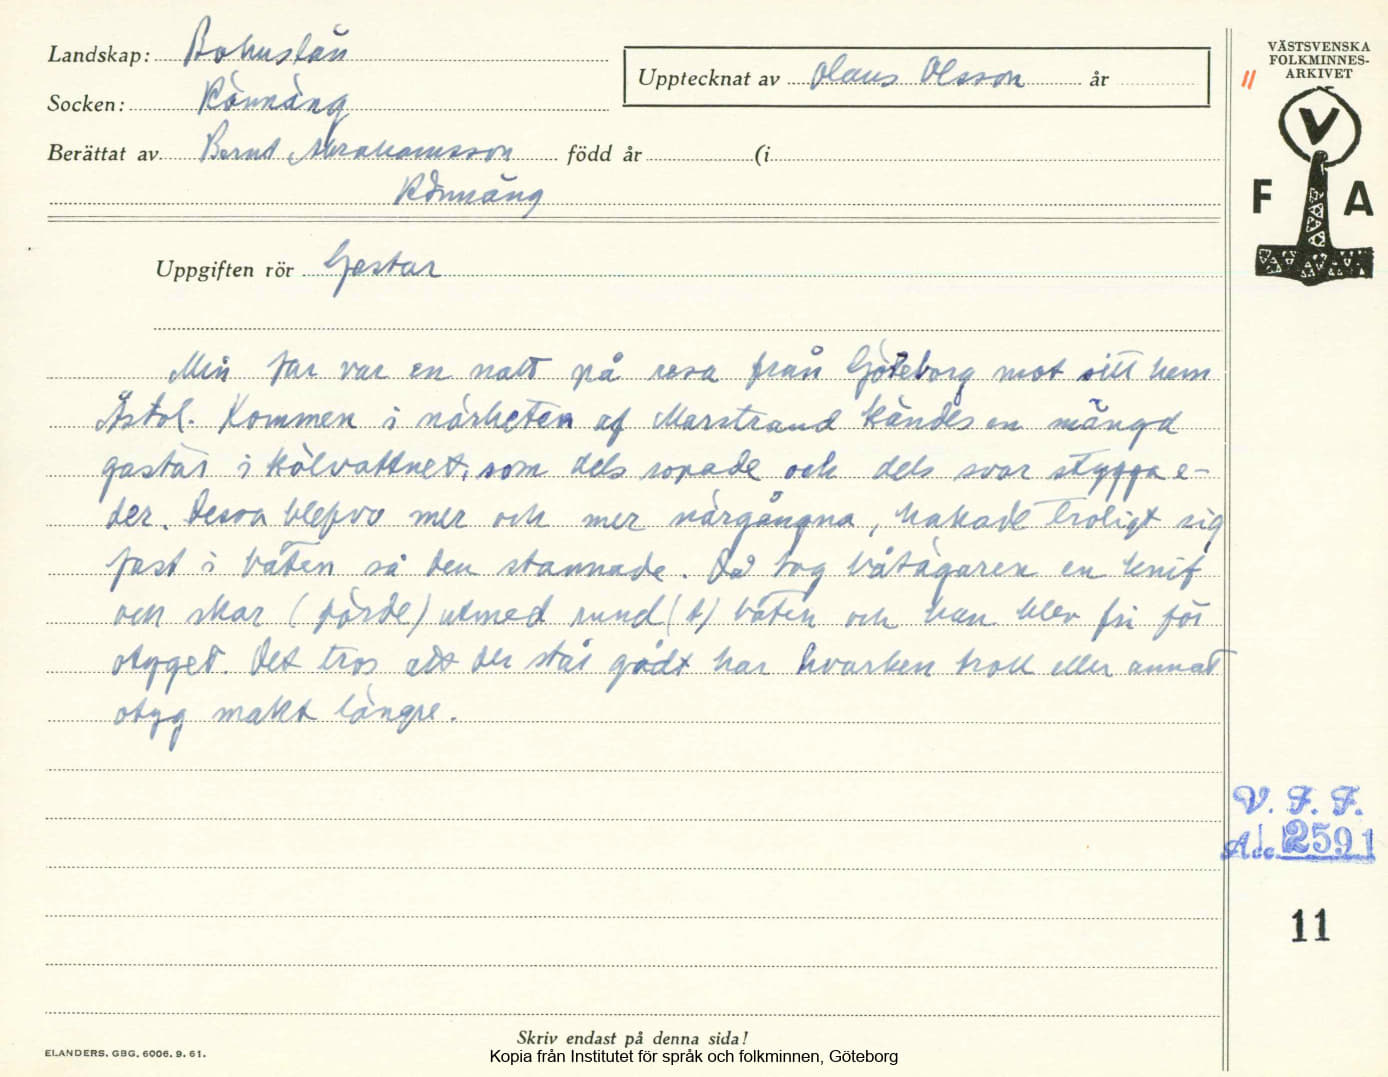 Landskap: Bohuslän
Socken: Rönnäng
Upptecknat av Olaus Olsson år
Berättat av Bernt Abrahamsson född år (i
Rönnäng
Uppgiften rör Gastar
Min far var en natt på resa från Göteborg mot sitt hem
Åstol. Kommen i närheten af Marstrand kändes en mängd
gastar i kölvattnet, som dels ropade och dels svor stygga e-
der. Dessa blefvo mer och mer närgångna, hakade troligt sig
fast i båten så den stannade. Då tog båtägaren en knif
och skar (förde) utmed rund(t) båten och han blev fri för
otyget. Det tros att der stål gådt har hvarken troll eller annat
otyg makt längre.
VÄSTSVENSKA
FOLKMINNES-
ARKIVET
11
V
F A
V. F. F.
Acc. 2591
11
Skriv endast på denna sida!
ELANDERS. GBG. 6006. 9. 61.
Kopia från Institutet för språk och folkminnen, Göteborg